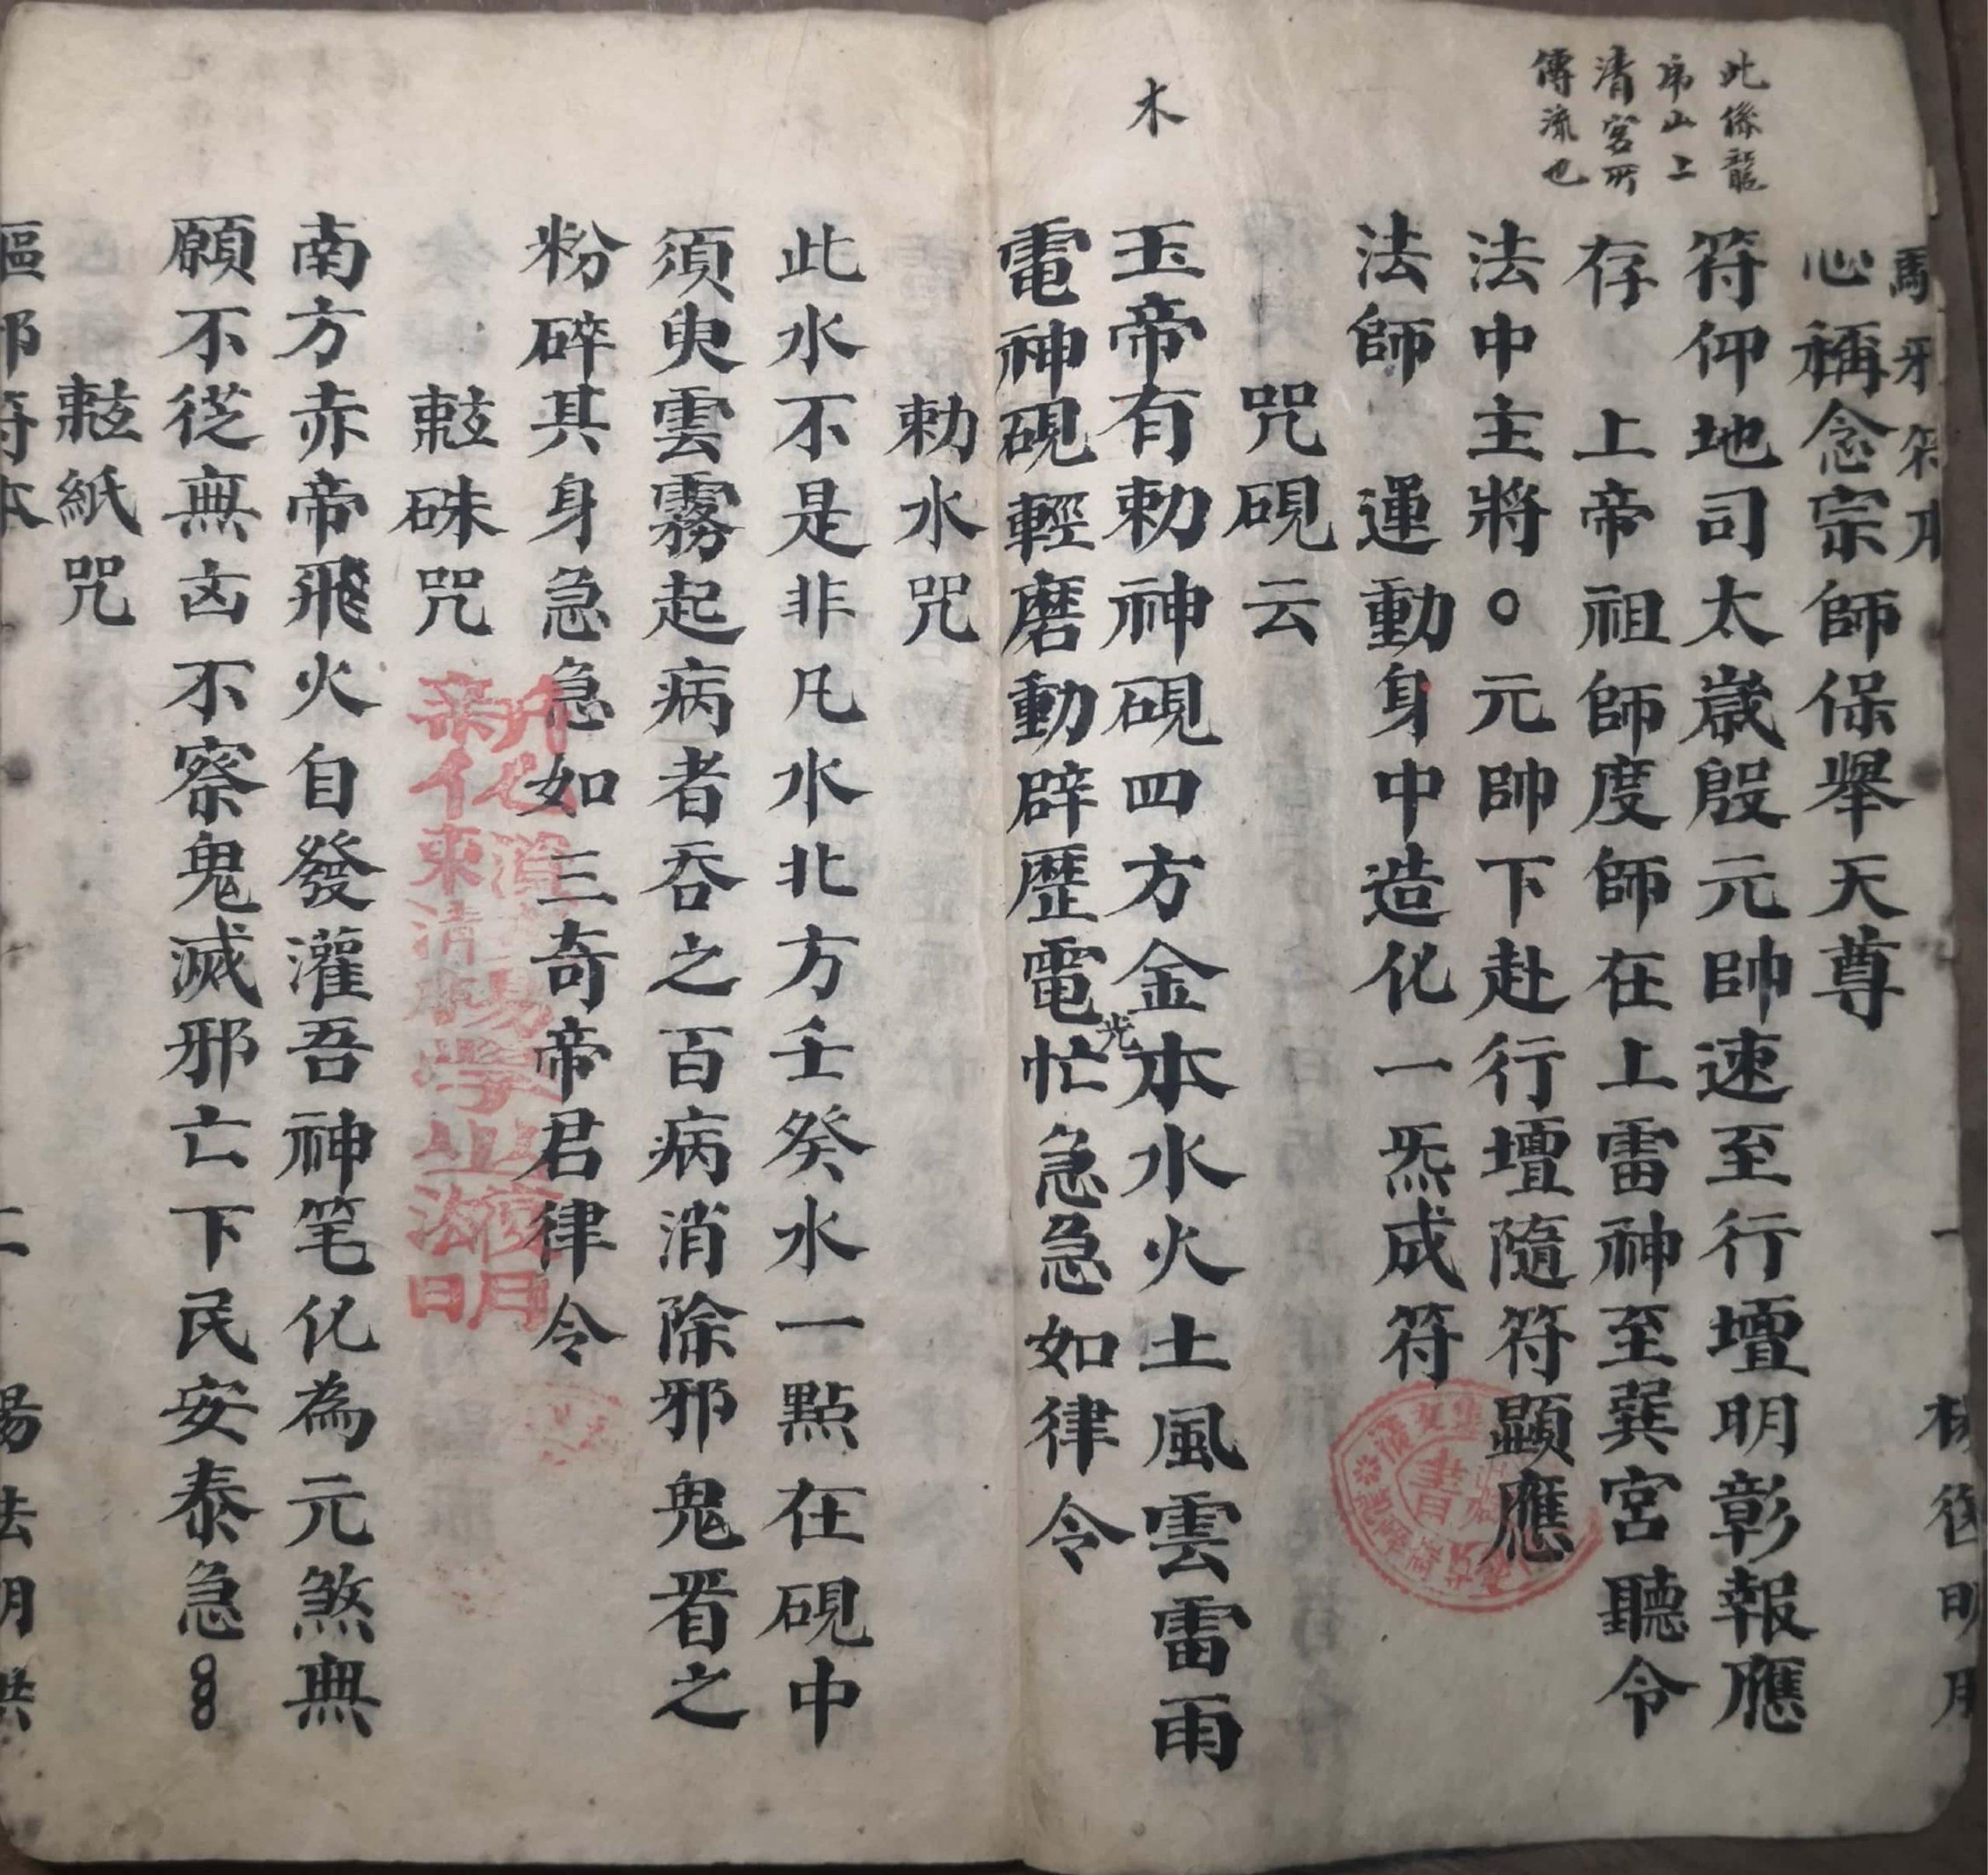 此係龍
虎山上
清宮所
傳流也
心稱念宗師保舉天尊
符仰地司太歲殷元帥速至行壇明彰報應
存 上帝祖師度師在上雷神至巽宮聽令
法中主將○元帥下赴行壇隨符顯應
法師 運動身中造化一炁成符
咒硯云
木
玉帝有勅神硯四方金本水火土風雲雷雨
電神硯輕磨動辟歷電光忙急急如律令
勅水咒
此水不是非凡水北方壬癸水一點在硯中
須臾雲霧起病者吞之百病消除邪鬼着之
粉碎其身急急如三奇帝君律令
敕硃咒
南方赤帝飛火自發灌吾神笔化為元煞無
願不從無凶不察鬼滅邪亡下民安泰急〻
敕紙咒